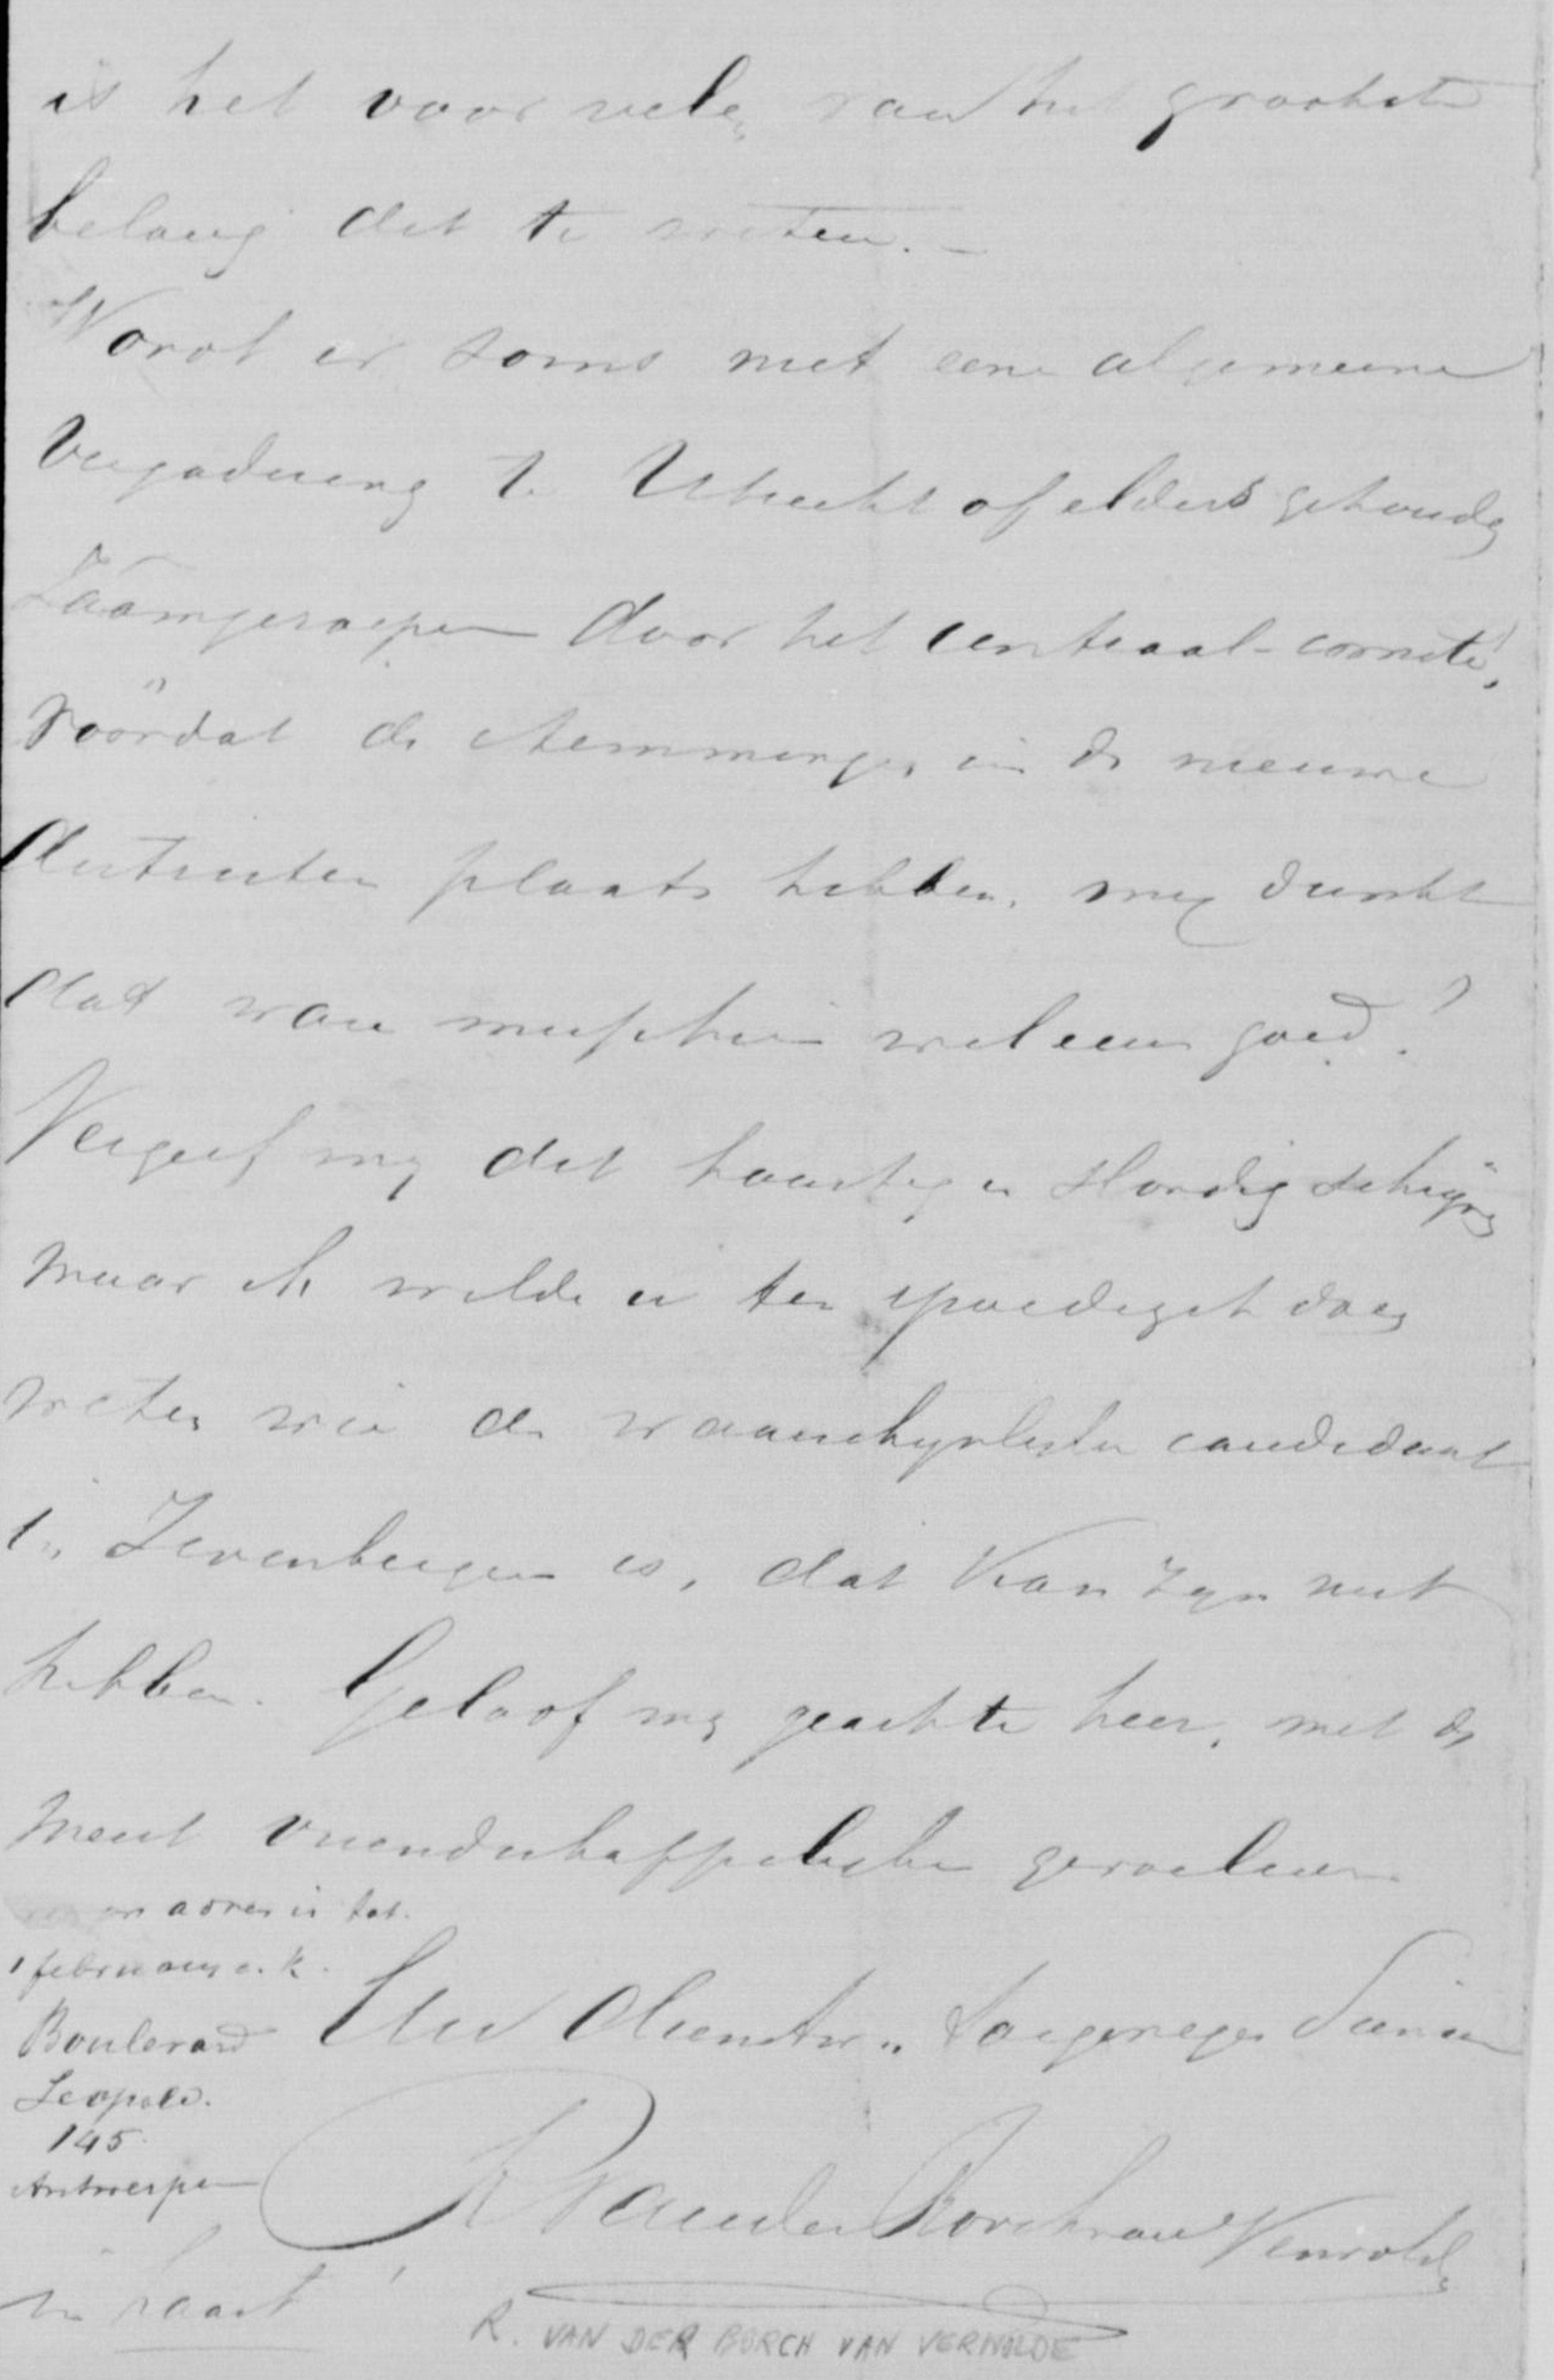 is het voor velen van het grootste
belang dit te weten. –
Wordt er soms niet eene algemeene
vergadering te Utrecht of elders gehouden
zaâmgeroepen door het centraal-comité,
vóórdat de stemmingen in de nieuwe
districten plaats hebben. mij dunkt
dat ware misschien wel eens goed?
Vergeef mij dit haastig en slordig schrijven
maar ik wilde u ten spoedigst doen
weten wie de waarschijnlijkste candidaat
in Zevenbergen is, dat kan zijn nut
hebben. Geloof mij geachte heer, met de
meest vriendschappelijke gevoelens
adres is tot
1 februarij a.k.
Boulevard
Leopold.
145
Antwerpen
Uw dienstw. toegenegen dienaar
R van der Borch van Verwolde
in haast!
R. VAN DER BORCH VAN VERWOLDE